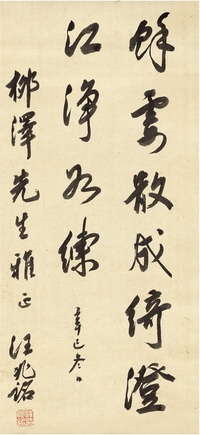 餘霞散成綺澄
江淨如練
辛巳冬日
柳澤先生雅正
汪兆銘